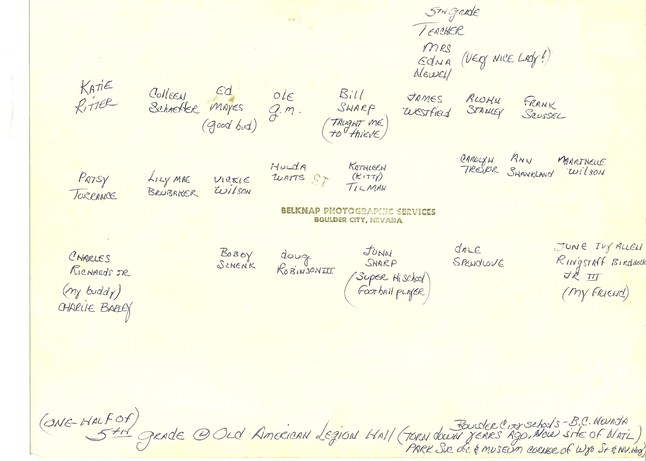 5TH GRADE
TEACHER
MRS
EDNA (VERY NICE LADY!)
NEWELL
KATIE RITTER
COLLEEN SCHAEFFER
ED MAYES (good bud)
OLE G.M.
Bill SHARP (TAUGHT ME TO THIEVE)
JAMES WESTFIELD
STANLEY
FRANK
PATSY TORRANCE
LILY MAE BRUBAKER
VICKIE WILSON
HULDA WATTS
KATHLEEN (KITTY) TILMAN
CAROLYN TREVOR
ANN SHANKLAND
WILSON
ST
BELKNAP PHOTOGRAPHIC SERVICES
BOULDER CITY, NEVADA
CHARLES RICHARDS JR (my buddy) CHARLIE BARLEY
BOBBY SCHENK
doug ROBINSON III
JOHN SHARP (SUPER Hi School Football player)
DALE SPENDLOVE
JUNE IVY ALLEN RINGSTAFF JR III (MY FRIEND)
(ONE-HALF OF)
5TH GRADE @ OLD AMERICAN LEGION HALL (TORN DOWN YEARS AGO, NOW SITE OF NAT'L
BOULDER CITY SCHOOLS - B.C. NEVADA
PARK Svc. & MUSEUM CORNER OF Wyo St & NV. Hwy)